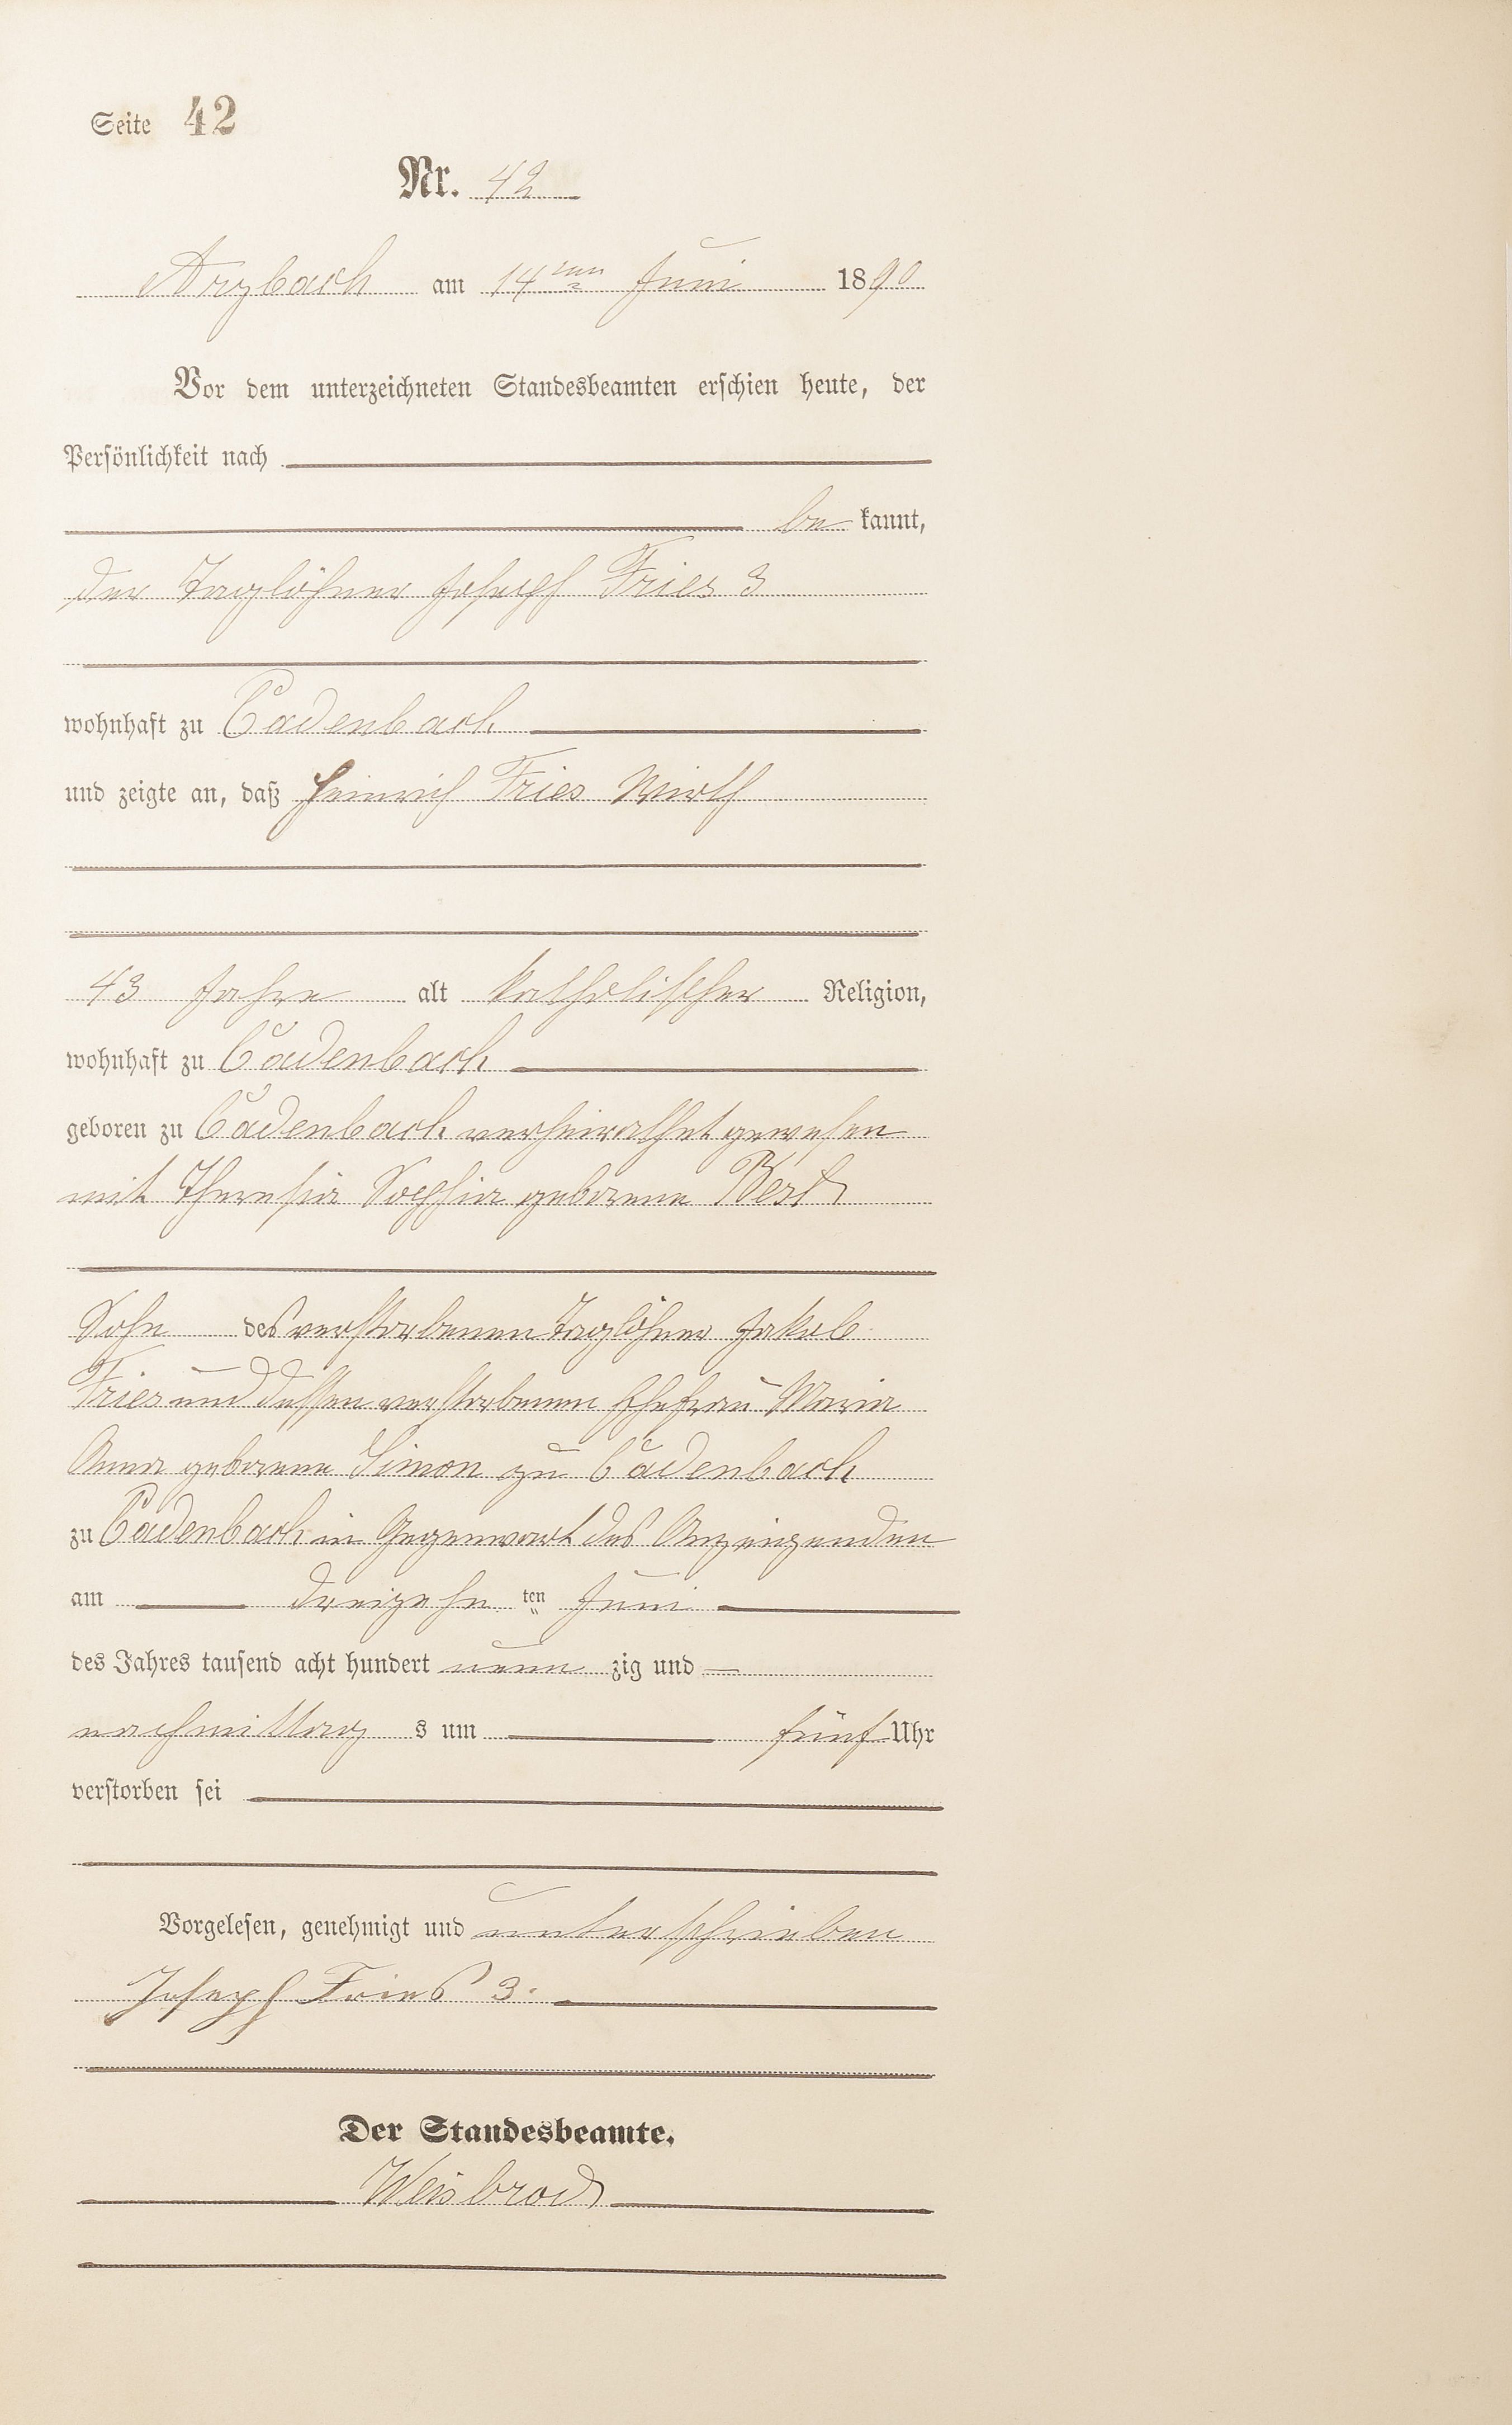 Seite 42
Nr. 42
Arzbach am 14ten Juni 1890
Vor dem unterzeichneten Standesbeamten erschien heute, der
Persönlichkeit nach
be kannt,
der Taglöhner Joseph Fries 3
wohnhaft zu Cadenbach
und zeigte an, daß Heinrich Fries Wirth
43 Jahre alt katholischer Religion,
wohnhaft zu Cadenbach
geboren zu Cadenbach verheirathet gewesen
mit Theresia Sophia geborene Best
Sohn des verstorbenen Taglöhner Jakob
Fries und dessen verstorbenen Ehefrau Maria
Anna geborene Simon zu Cadenbach
zu Cadenbach in Gegenwart des Anzeigenden
am dreizehn ten Juni
des Jahres tausend acht hundert neun zig und
nachmittag s um fünf Uhr
verstorben sei
Vorgelesen, genehmigt und unterschrieben
Joseph Fries 3.
Der Standesbeamte.
Weisbrod